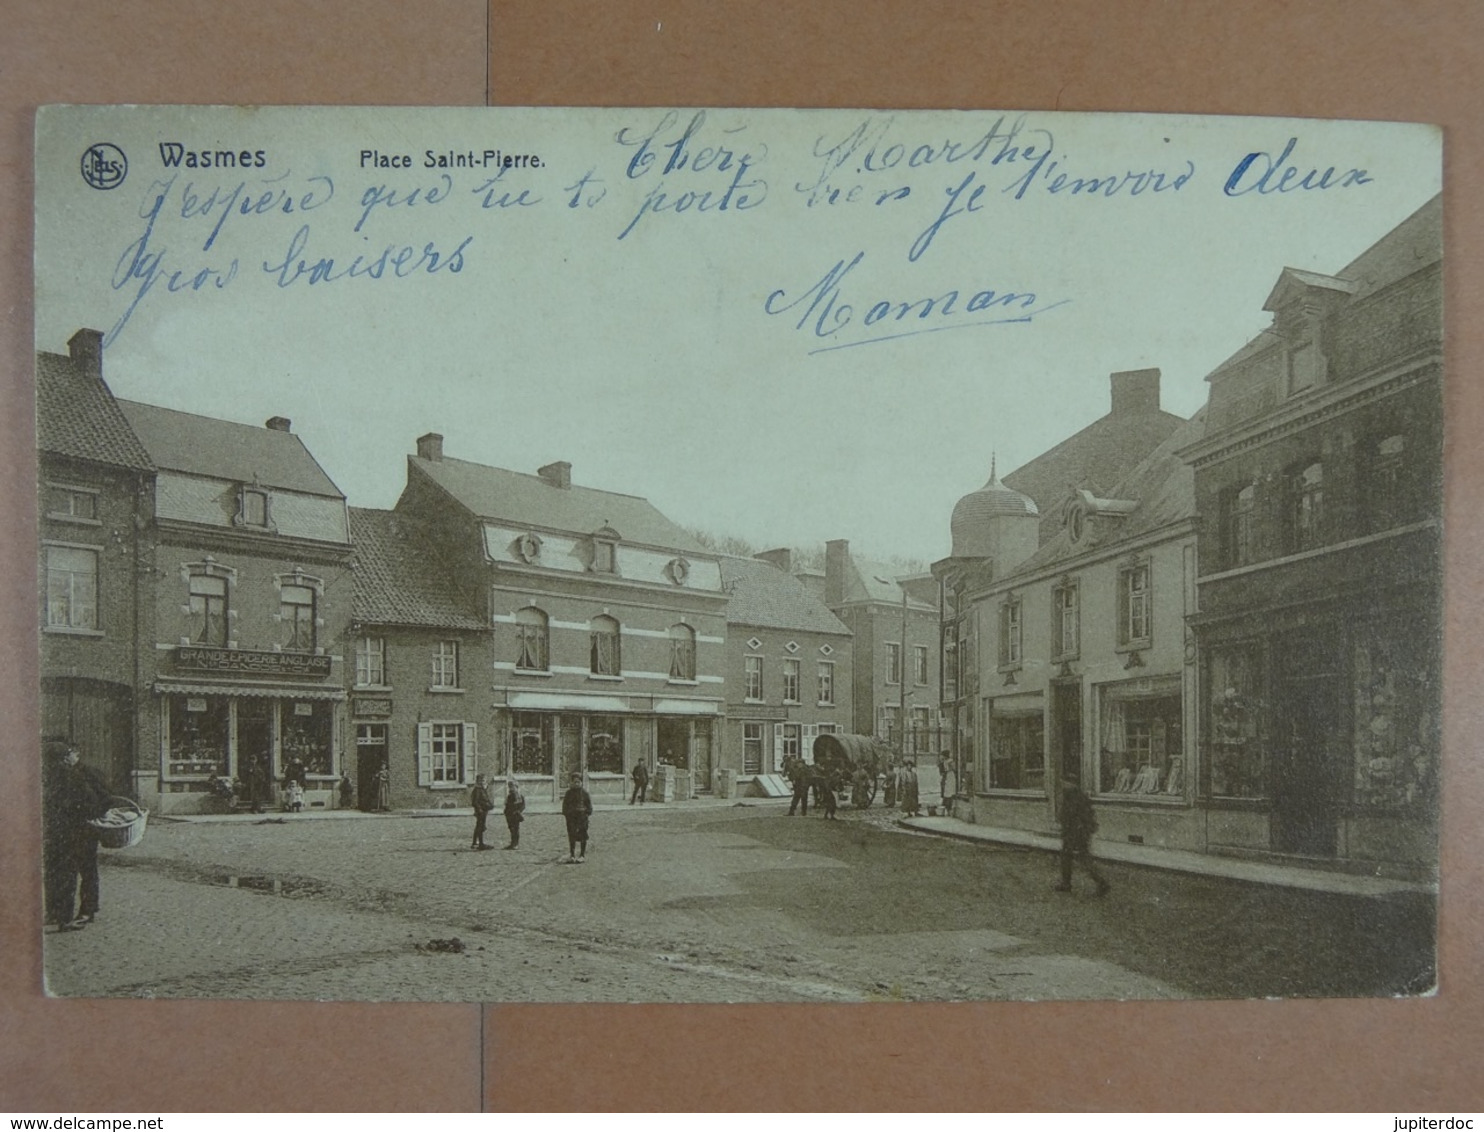 Nels
Wasmes Place Saint-Pierre.
Chère Marthe
J'espère que tu te porte bien je t'envoie deux
gros baisers
Maman
GRANDE EPICERIE ANGLAISE
jupiterdoc